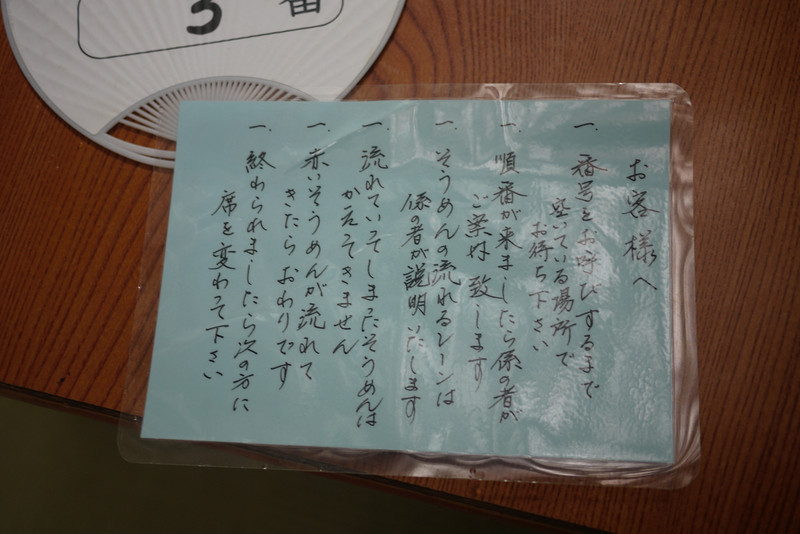 5番
お客様へ
一、番号をお呼びするまで
空いている場所で
お待ち下さい
一、順番が来ましたら係の者が
ご案内致します
一、そうめんの流れるレーンは
係の者が説明いたします
一、流れていってしまったそうめんは
かえってきません
一、赤いそうめんが流れて
きたらおわりです
一、終わられましたら次の方に
席を変わって下さい